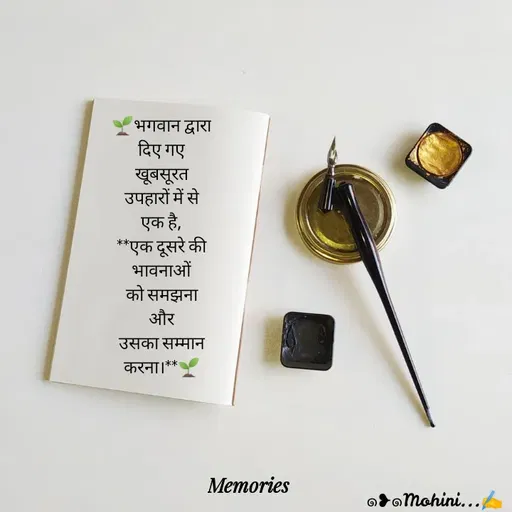 🌱भगवान द्वारा
दिए गए
खूबसूरत
उपहारों में से
एक है,
**एक दूसरे की
भावनाओं
को समझना
और
उसका सम्मान
करना।**🌱
Memories
๑❥๑Mohini...✍️